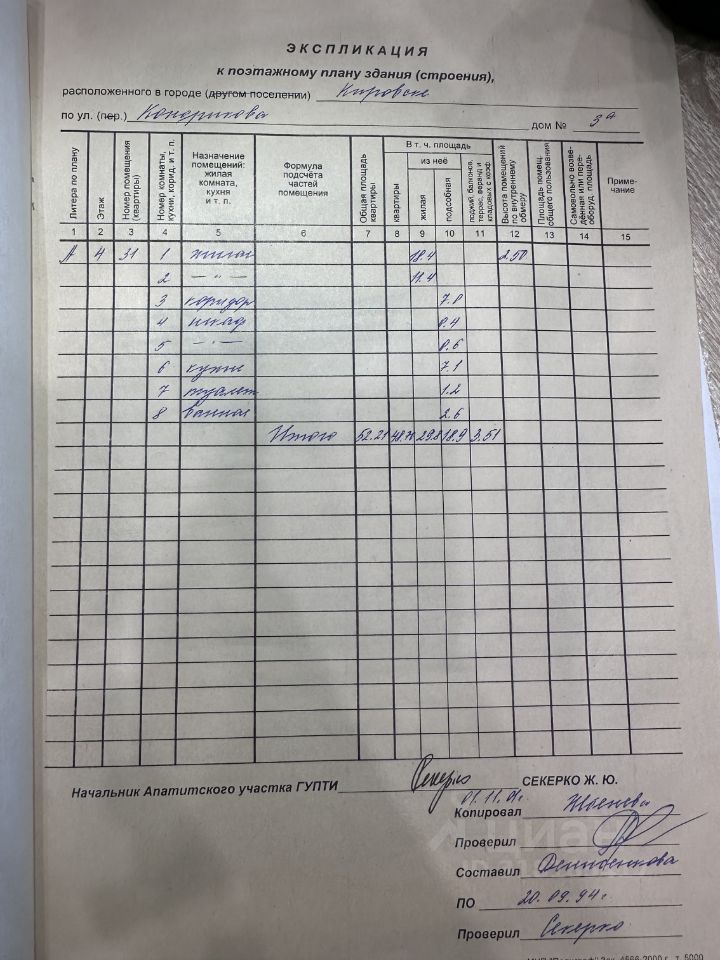 ЭКСПЛИКАЦИЯ
к поэтажному плану здания (строения),
расположенного в городе (другом поселении) Кировске
по ул. (пер.) Кондрикова дом № 3а
Литера по плану
Этаж
Номер помещения (квартиры)
Номер комнаты, кухни, корид. и т. п.
Назначение помещений: жилая комната, кухня и т. п.
Формула подсчёта частей помещения
Общая площадь квартиры
В т. ч. площадь
квартиры
из неё
жилая
подсобная
лоджий, балконов, террас, веранд и кладовых с коэф.
Высота помещений по внутреннему обмеру
Площадь помещ. общего пользования
Самовольно возведённая или переоборуд. площадь
Примечание
1 2 3 4 5 6 7 8 9 10 11 12 13 14 15
А 4 31 1 жилая 18.4 2.50
2 — " — 11.4
3 коридор 7.0
4 шкаф 0.4
5 — " — 0.6
6 кухня 7.1
7 туалет 1.2
8 ванная 2.6
Итого 52.21 48.70 29.8 18.9 3.51
Начальник Апатитского участка ГУПТИ Секерко СЕКЕРКО Ж. Ю.
01.11.01г.
Копировал
Проверил
Составил
ПО 20.09.94г.
Проверил Секерко
циан